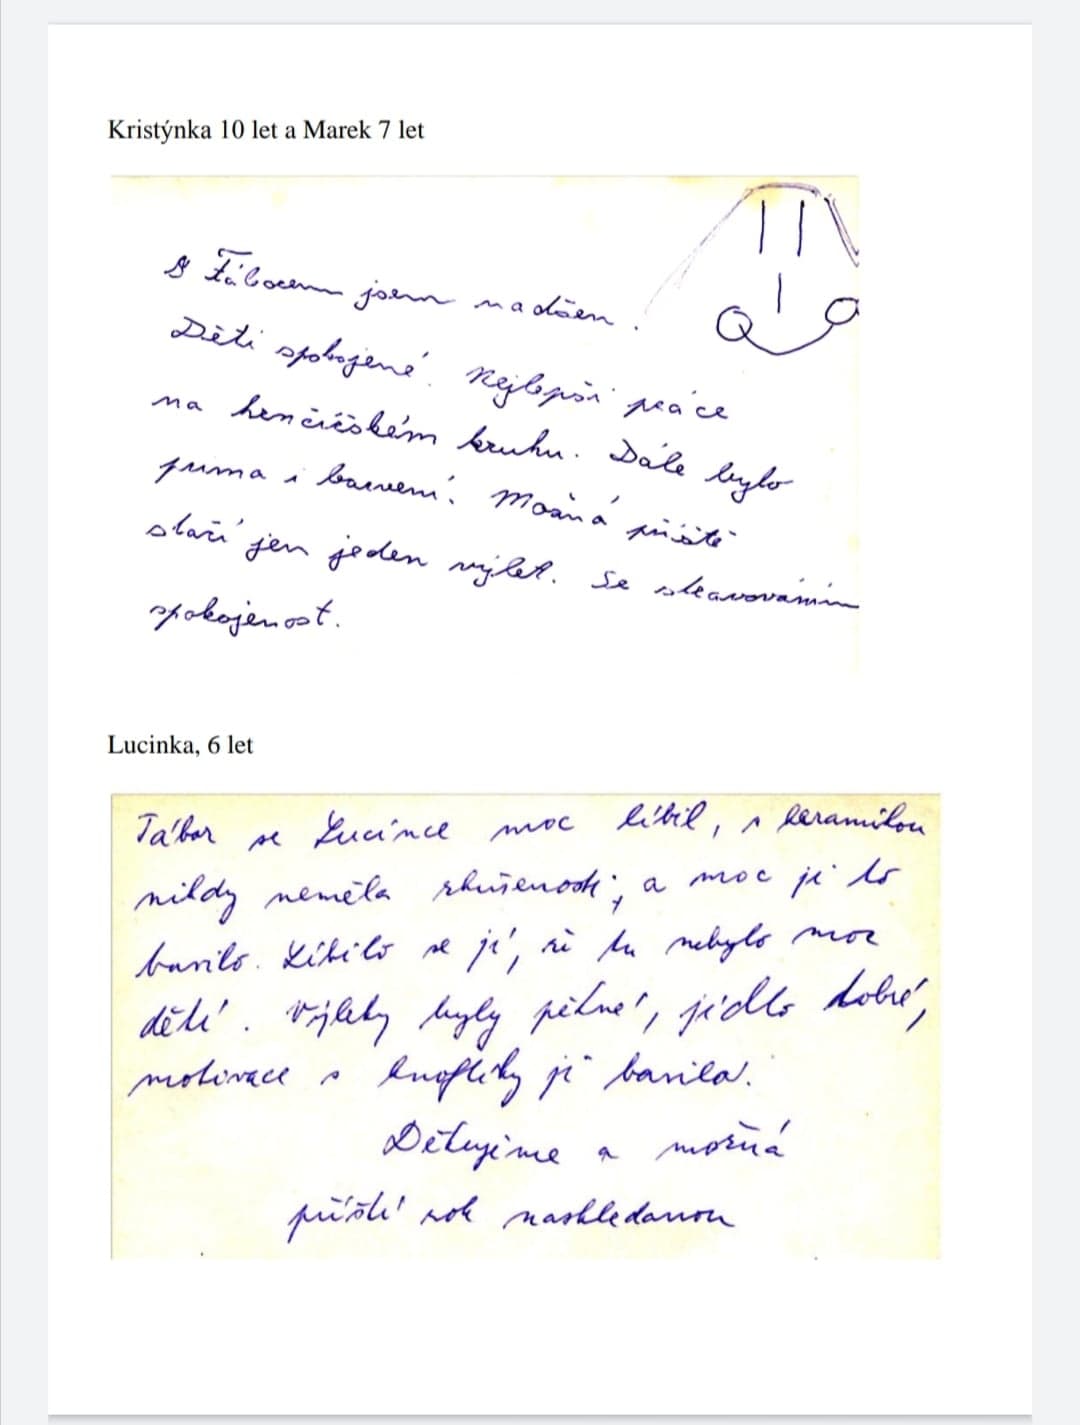 Kristýnka 10 let a Marek 7 let
S Táborem jsem nadšen.
Děti spokojené. Nejlepší práce
na hrnčířském kruhu. Dále bylo
prima i barvení. Možná příště
stačí jen jeden výlet. Se stravováním
spokojenost.
Lucinka, 6 let
Tábor se Lucince moc líbil, s keramikou
nikdy neměla zkušenosti, a moc ji to
bavilo. Líbilo se jí, že tu nebylo moc
dětí. Výlety byly pěkné, jídlo dobré,
motivace s knoflíky ji bavila.
Děkujeme a možná
příští rok nashledanou